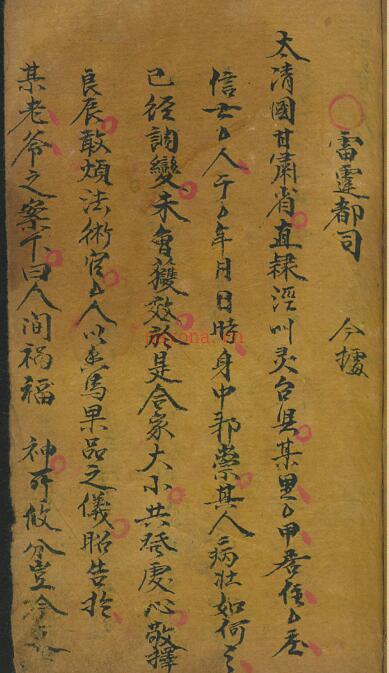 雷霆都司　今據
大清國甘肅省直隸涇州灵台县某里厶甲居住厶
信士厶人于厶年月日時身中邪祟其人病壮如何
已經調變未曾獲效於是合家大小共發虔心敬擇
良辰敢煩法術官厶人以香馬果品之儀昭告於
某老爷之案下曰人间祸福　神所攸分豈